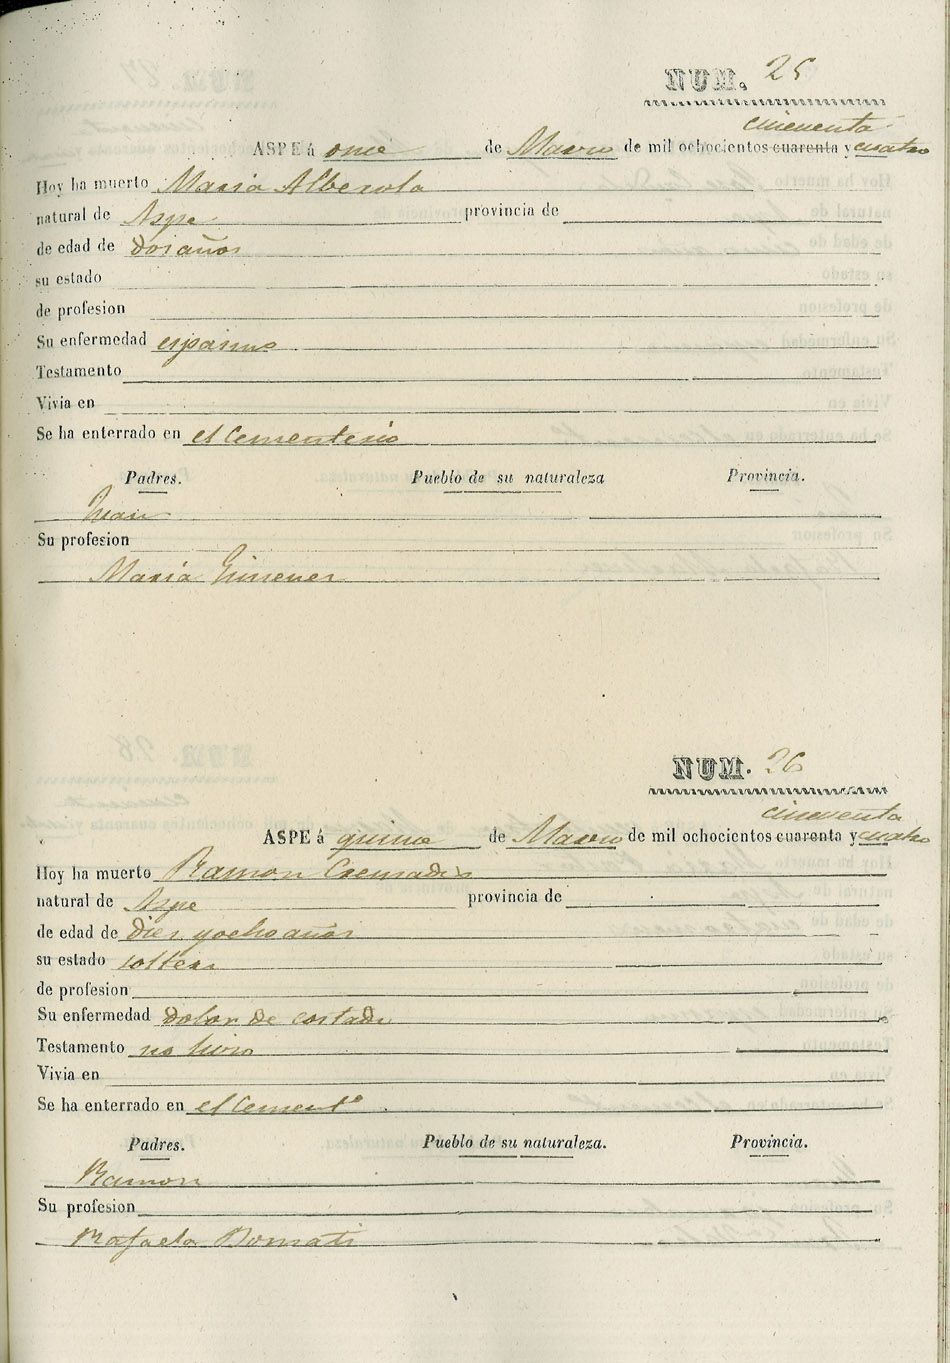 NUM. 25
cincuenta
ASPE á once de Marzo de mil ochocientos cuarenta y cuatro
Hoy ha muerto Maria Alberola
natural de Aspe provincia de
de edad de dos años
su estado
de profesion
Su enfermedad espasmo
Testamento
Vivia en
Se ha enterrado en el Cementerio
Padres. Pueblo de su naturaleza Provincia.
Juan
Su profesion
Maria Gimenez
NUM. 26
cincuenta
ASPE á quince de Marzo de mil ochocientos cuarenta y cuatro
Hoy ha muerto Ramon Cremades
natural de Aspe provincia de
de edad de diez y ocho años
su estado soltero
de profesion
Su enfermedad dolor de costado
Testamento no hizo
Vivia en
Se ha enterrado en el Cementº
Padres. Pueblo de su naturaleza. Provincia.
Ramon
Su profesion
Rafaela Bomati